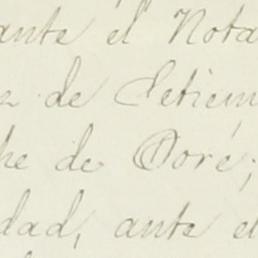 ante el Nota
z de Setiem
he de Doré;
dad, ante el